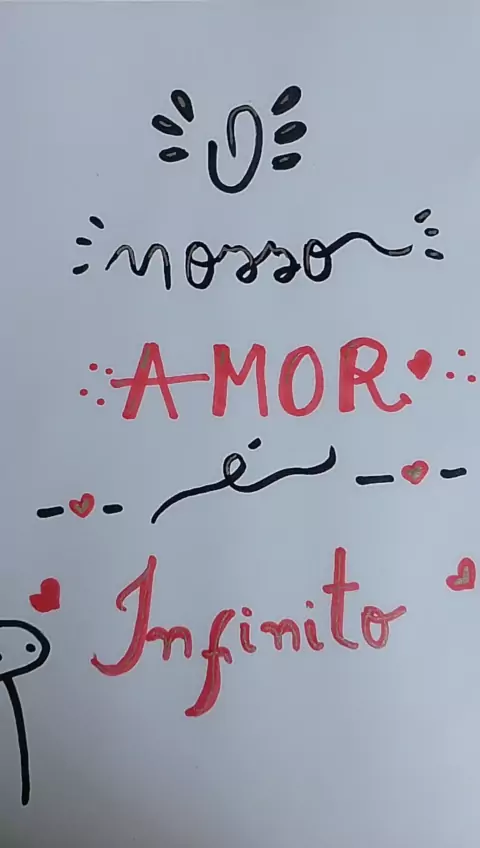 O
nosso
AMOR
é
Infinito